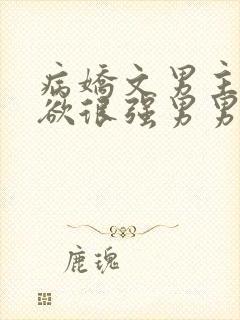 病娇文男主
欲很强男男
鹿瑰